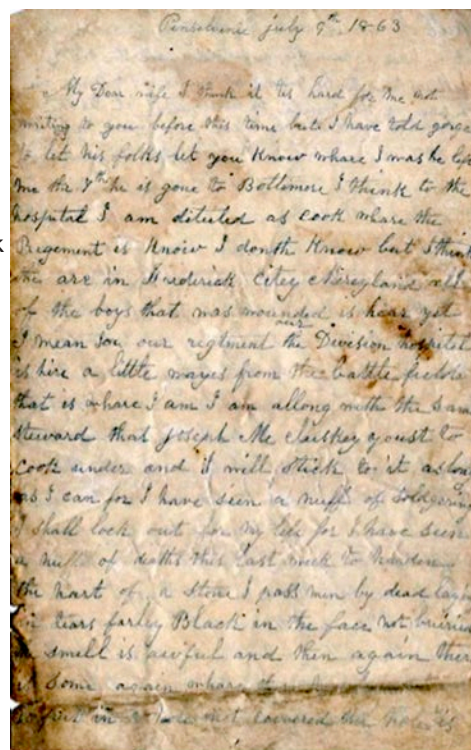 Penselvania july 9th 1863
My Dear wife I think it tis hard for me not
writing to you before this time but I have told gorge
to let his folks let you Know whare I was he left
me the 7th he is gone to Boltimore I think to the
hospital I am dituled as cook whare the
Regement is Know I donth Know but I think
the are in Frederick Citey Mereyland all
of the boys that was wounded is hear yet
I mean our regtment our Division hospital
is hire a little wayes from the battle fields
that is whare I am I am allong with the Sam
Steward that Joseph Mc Cluskey youst to
Cook under and I will stick to it as long
as I can for I have seen a nuff of Soldgering
I shall lock out for my life for I have seen
a nuff of deaths this last week to
the hart of a Stone I pass men by dead layes
in Black in the face not buried
the smell is awful and then again ther
is Some again whare
in a not covered the
k